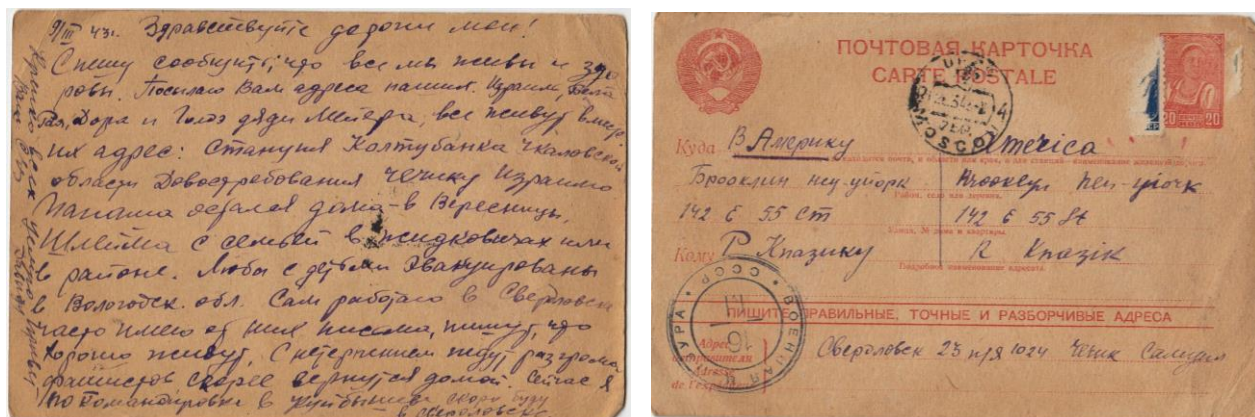 9/III 43г. Здравствуйте дороги мои!
Спешу сообщить, что все мы живы и здо
ровы. Посылаю Вам адреса наших. Израиль,
Дора и Голда дяди Мейера, все живут вместе
их адрес: станция Колтубанка Чкаловской
области Довостребования Чечику Израилю
папаша остался дома в Вересницы,
Шлейма с семьей в Жидковичах или
в районе. Люба с детьми эвакуированы
в Вологодск. обл. Сам работаю в Свердловске
часто имею от них письма, пишут, что
хорошо живут. С нетерпением ждут разгрома
фашистов, скорее вернутся домой. Сейчас я
по командировке в Куйбышеве скоро буду
в Свердловске
Крепко всех целую
Ваш
ПОЧТОВАЯ КАРТОЧКА
CARTE POSTALE
20 20
MOSCOU
4
Куда В Америку America
Бруклин неу-йорк Brooklyn neu-yiorк
Район, село или деревня.
142 E 55 ст 142 E 55 St
Кому Р Кназику R Knazik
Подробное наименование адресата.
ПИШИТЕ ПРАВИЛЬНЫЕ, ТОЧНЫЕ И РАЗБОРЧИВЫЕ АДРЕСА
ВОЕННАЯ ЦЕНЗУРА СССР
Адрес отправителя
Adresse de l'expéditeur
Свердловск 23 п/я 1024 Чечик